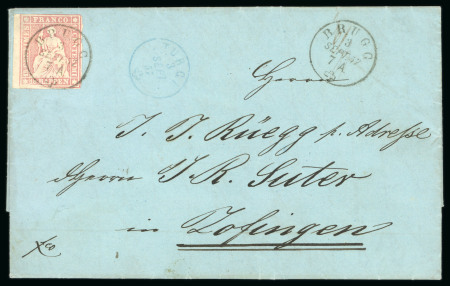 FRANCO
BRUGG
BRUGG
7 A
Herrn
J. J. Rüegg p. Adresse
Herrn J. R. Suter
in Zofingen